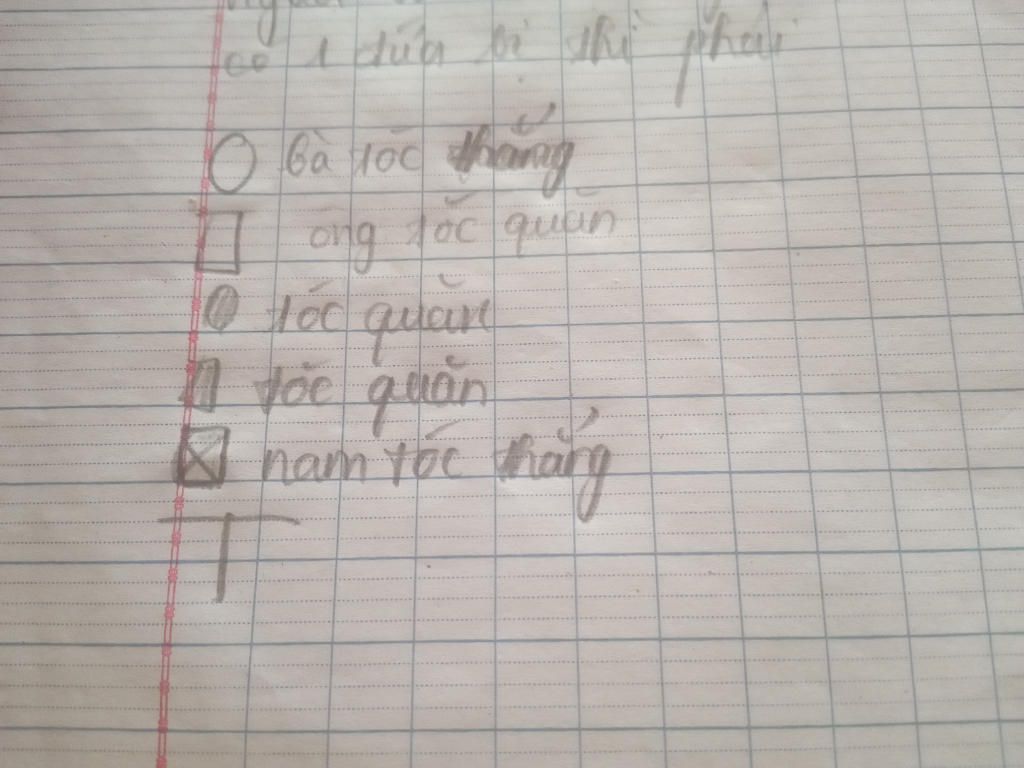 có 1 đứa bị thì phải
bà tóc thẳng
ông tóc quăn
tóc quăn
tóc quăn
nam tóc thẳng